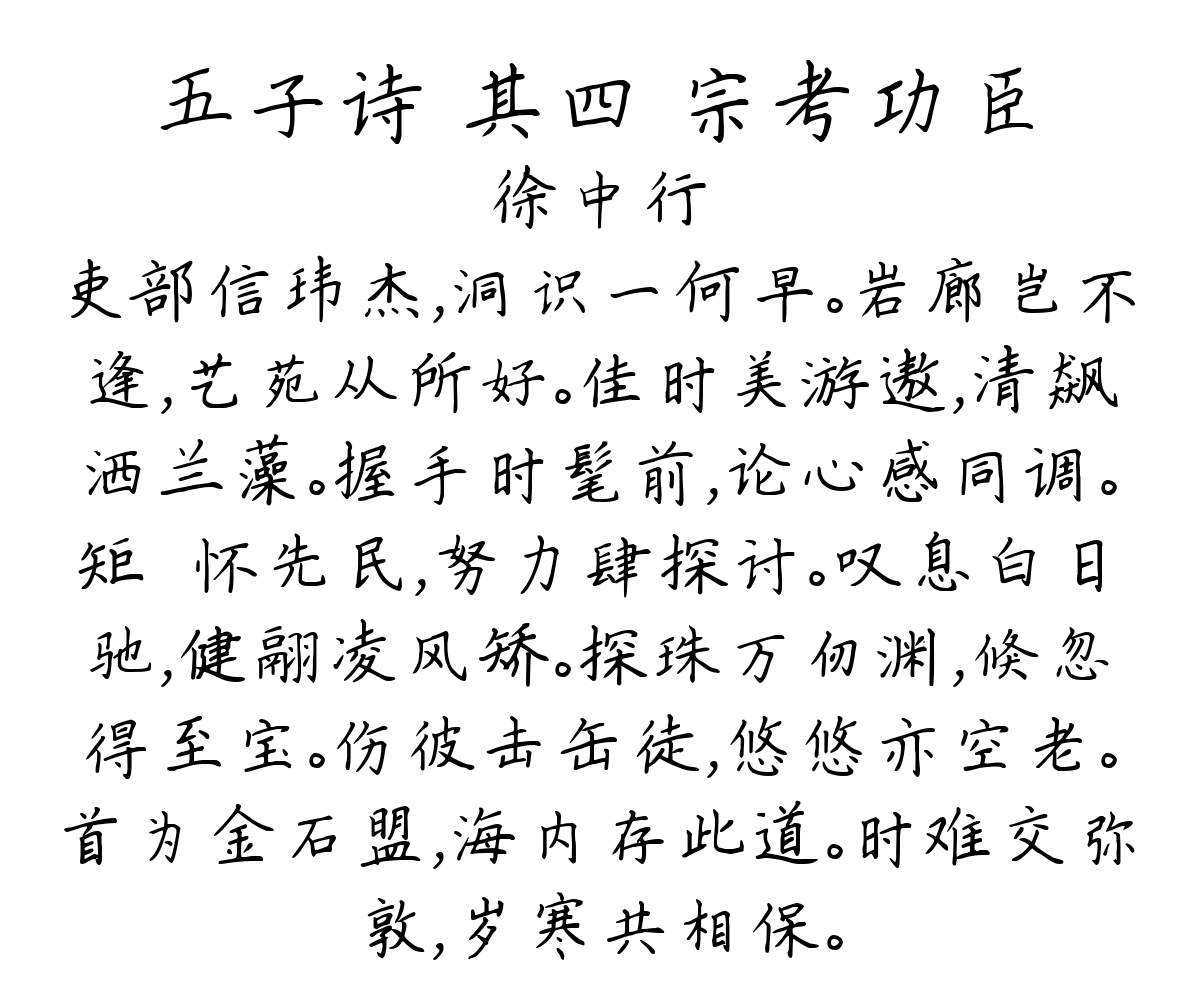 五子诗 其四 宗考功臣
徐中行
吏部信玮杰,洞识一何早。岩廊岂不
逢,艺苑从所好。佳时美游遨,清飙
洒兰藻。握手时髦前,论心感同调。
矩 怀先民,努力肆探讨。叹息白日
驰,健翮凌风矫。探珠万仞渊,倏忽
得至宝。伤彼击缶徒,悠悠亦空老。
首为金石盟,海内存此道。时难交弥
敦,岁寒共相保。